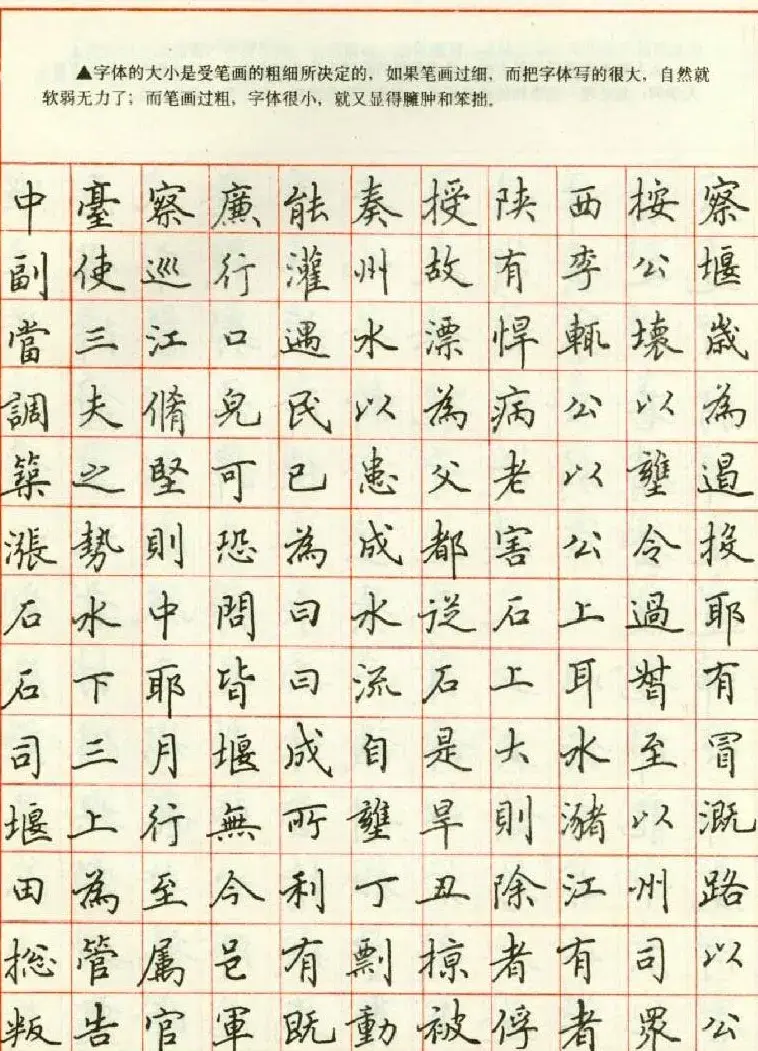 ▲字体的大小是受笔画的粗细所决定的，如果笔画过细，而把字体写的很大，自然就
软弱无力了；而笔画过粗，字体很小，就又显得臃肿和笨拙。
中臺察廉能奏授陕西按察
副使巡行灌州故有李公堰
當三江口遇水漂悍輒壞歲
調夫脩完民以為病公以為
築之堅可已患父老以壅遏
漲勢則恐為成都害公令投
石水中問曰水従石上過耶
石下耶皆曰流石上耳督有
司三月堰成自是大水至冒
堰上行無所壅旱則瀦以溉
田為至今利丁丑除江州路
総管属邑有剽掠者有司以
叛告官軍既動被俘者眾公